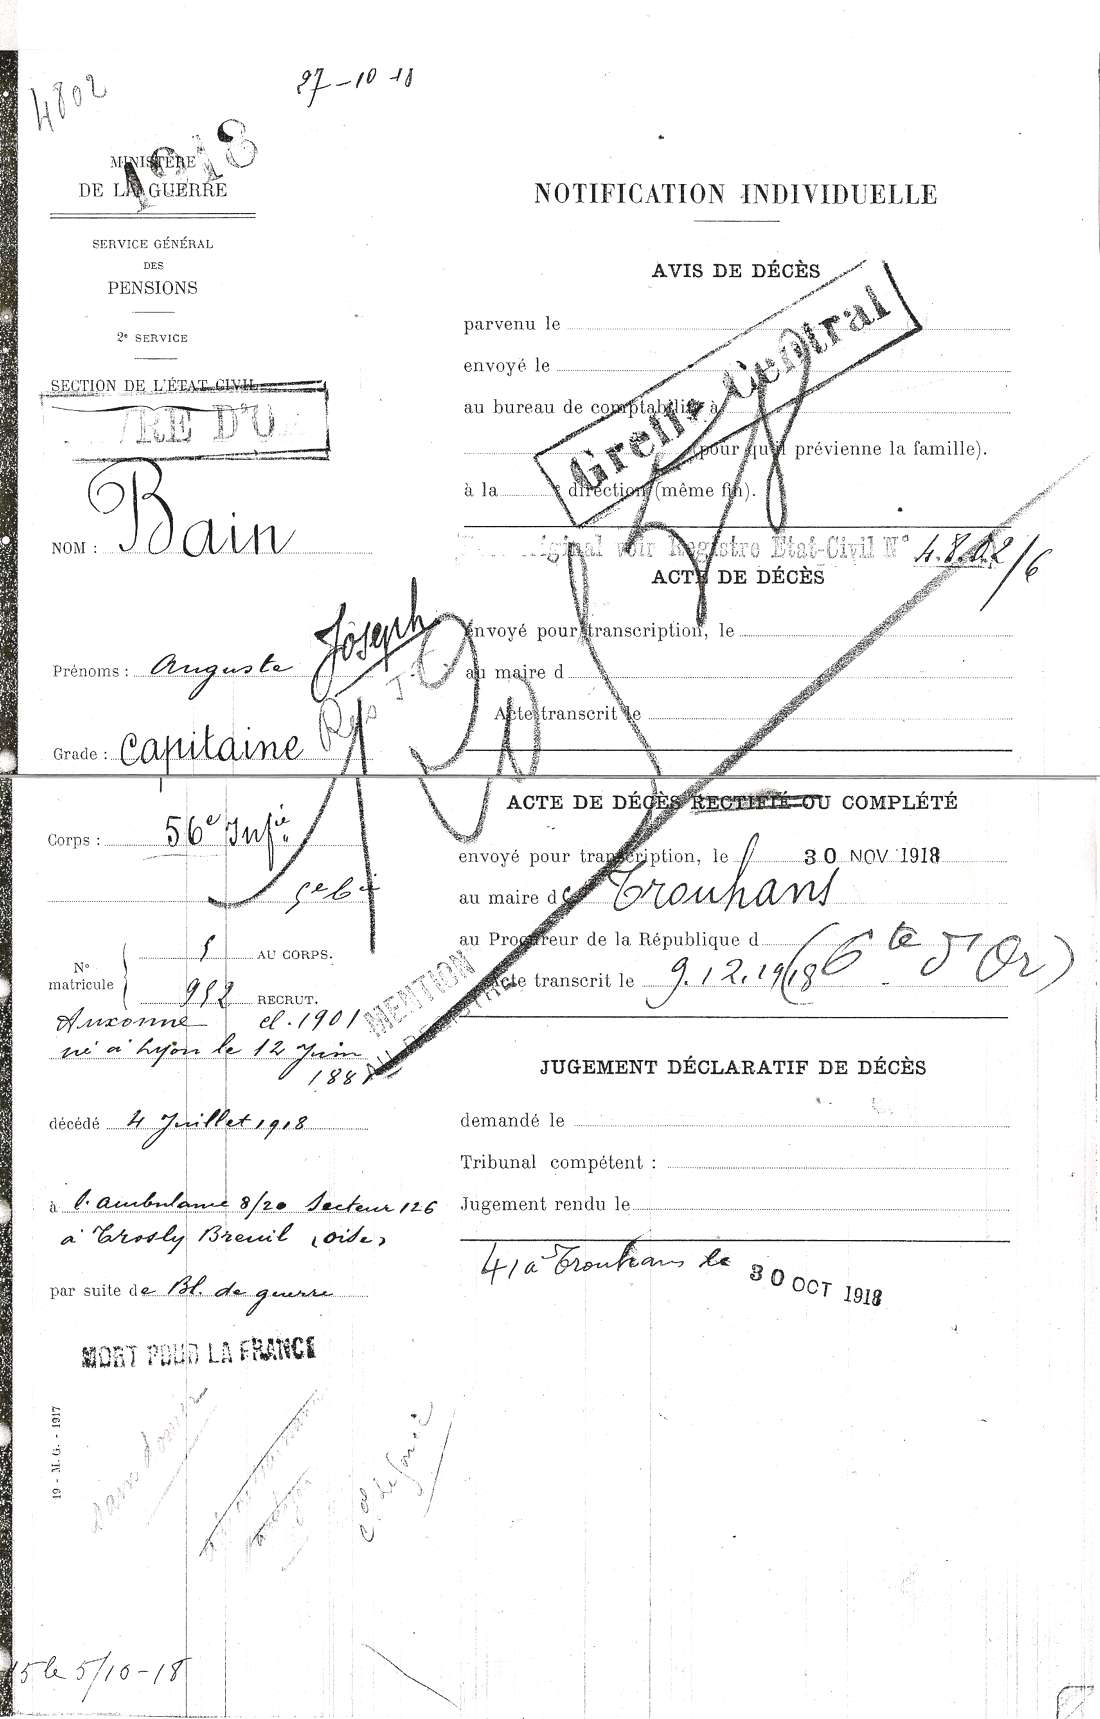 4802
27-10-18
1918
MINISTÈRE
DE LA GUERRE
SERVICE GÉNÉRAL
DES
PENSIONS
2e SERVICE
SECTION DE L'ÉTAT CIVIL
NOM : Bain
Prénoms : Auguste Joseph
Grade : Capitaine
Corps : 56e Infie
5e Cie
No matricule
5 AU CORPS.
952 RECRUT.
Auxonne cl. 1901
né à Lyon le 12 Juin
1881
décédé 4 Juillet 1918
à l'ambulance 8/20 Secteur 126
à Trosly Breuil (oise)
par suite de Bl. de guerre
MORT POUR LA FRANCE
19 - M. G. - 1917
5 le 5/10-18
NOTIFICATION INDIVIDUELLE
AVIS DE DÉCÈS
parvenu le
envoyé le
au bureau de comptabilité à
(pour qu'il prévienne la famille).
à la e direction (même fin).
Greffe Central
original voir Registre Etat-Civil No 4.802/6
ACTE DE DÉCÈS
envoyé pour transcription, le
au maire d
Acte transcrit le
ACTE DE DÉCÈS RECTIFIÉ OU COMPLÉTÉ
envoyé pour transcription, le 30 NOV 1918
au maire de Trouhans
au Procureur de la République d (Cte d'Or)
Acte transcrit le 9.12.1918
MENTION
JUGEMENT DÉCLARATIF DE DÉCÈS
demandé le
Tribunal compétent :
Jugement rendu le
41 à Trouhans le 30 OCT 1918